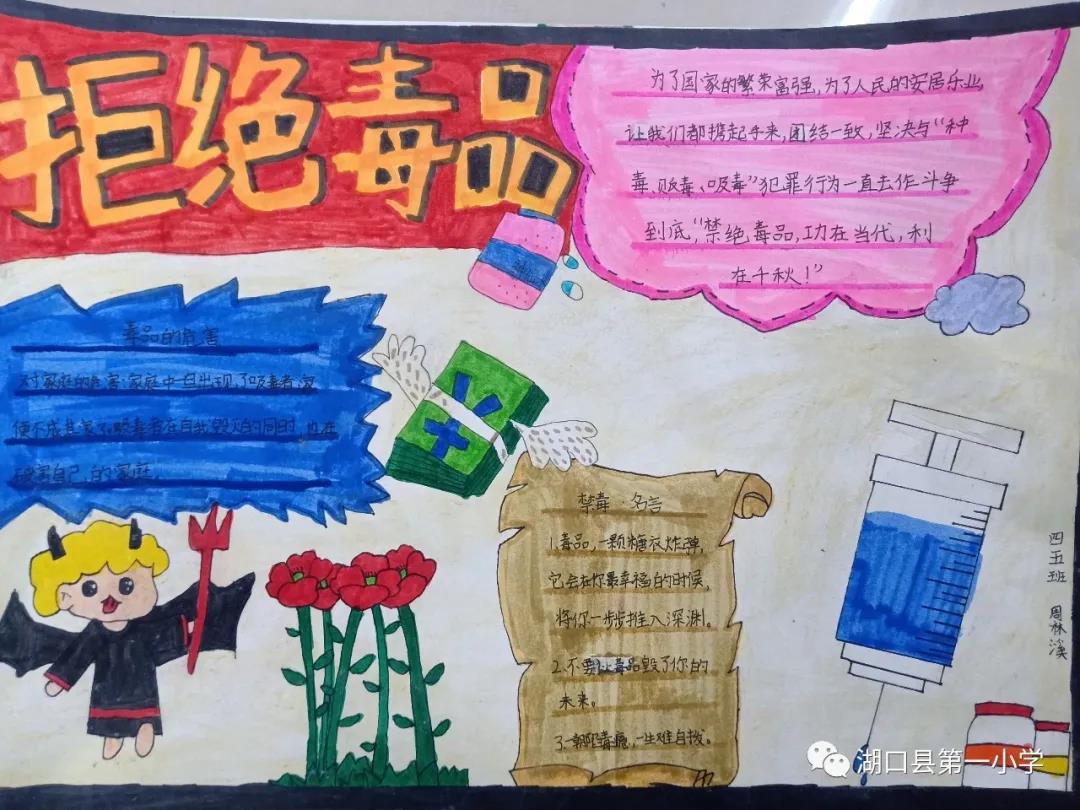 拒绝毒品
为了国家的繁荣富强,为了人民的安居乐业,
让我们都携起手来,团结一致,坚决与“种
毒、贩毒、吸毒”犯罪行为一直去作斗争
到底,“禁绝毒品,功在当代,利
在千秋!”
毒品的危害
对家庭的危害:家庭中一旦出现了吸毒者,家
便不成其家了。吸毒者在自我毁灭的同时,也在
破害自己的家庭。
禁毒·名言
1.毒品,一颗糖衣炸弹,
它会在你最幸福的时候,
将你一步步推入深渊。
2.不要让毒品毁了你的
未来。
3.朝毒瘾,一生难自拔。
四五班 周林溪
湖口县第一小学